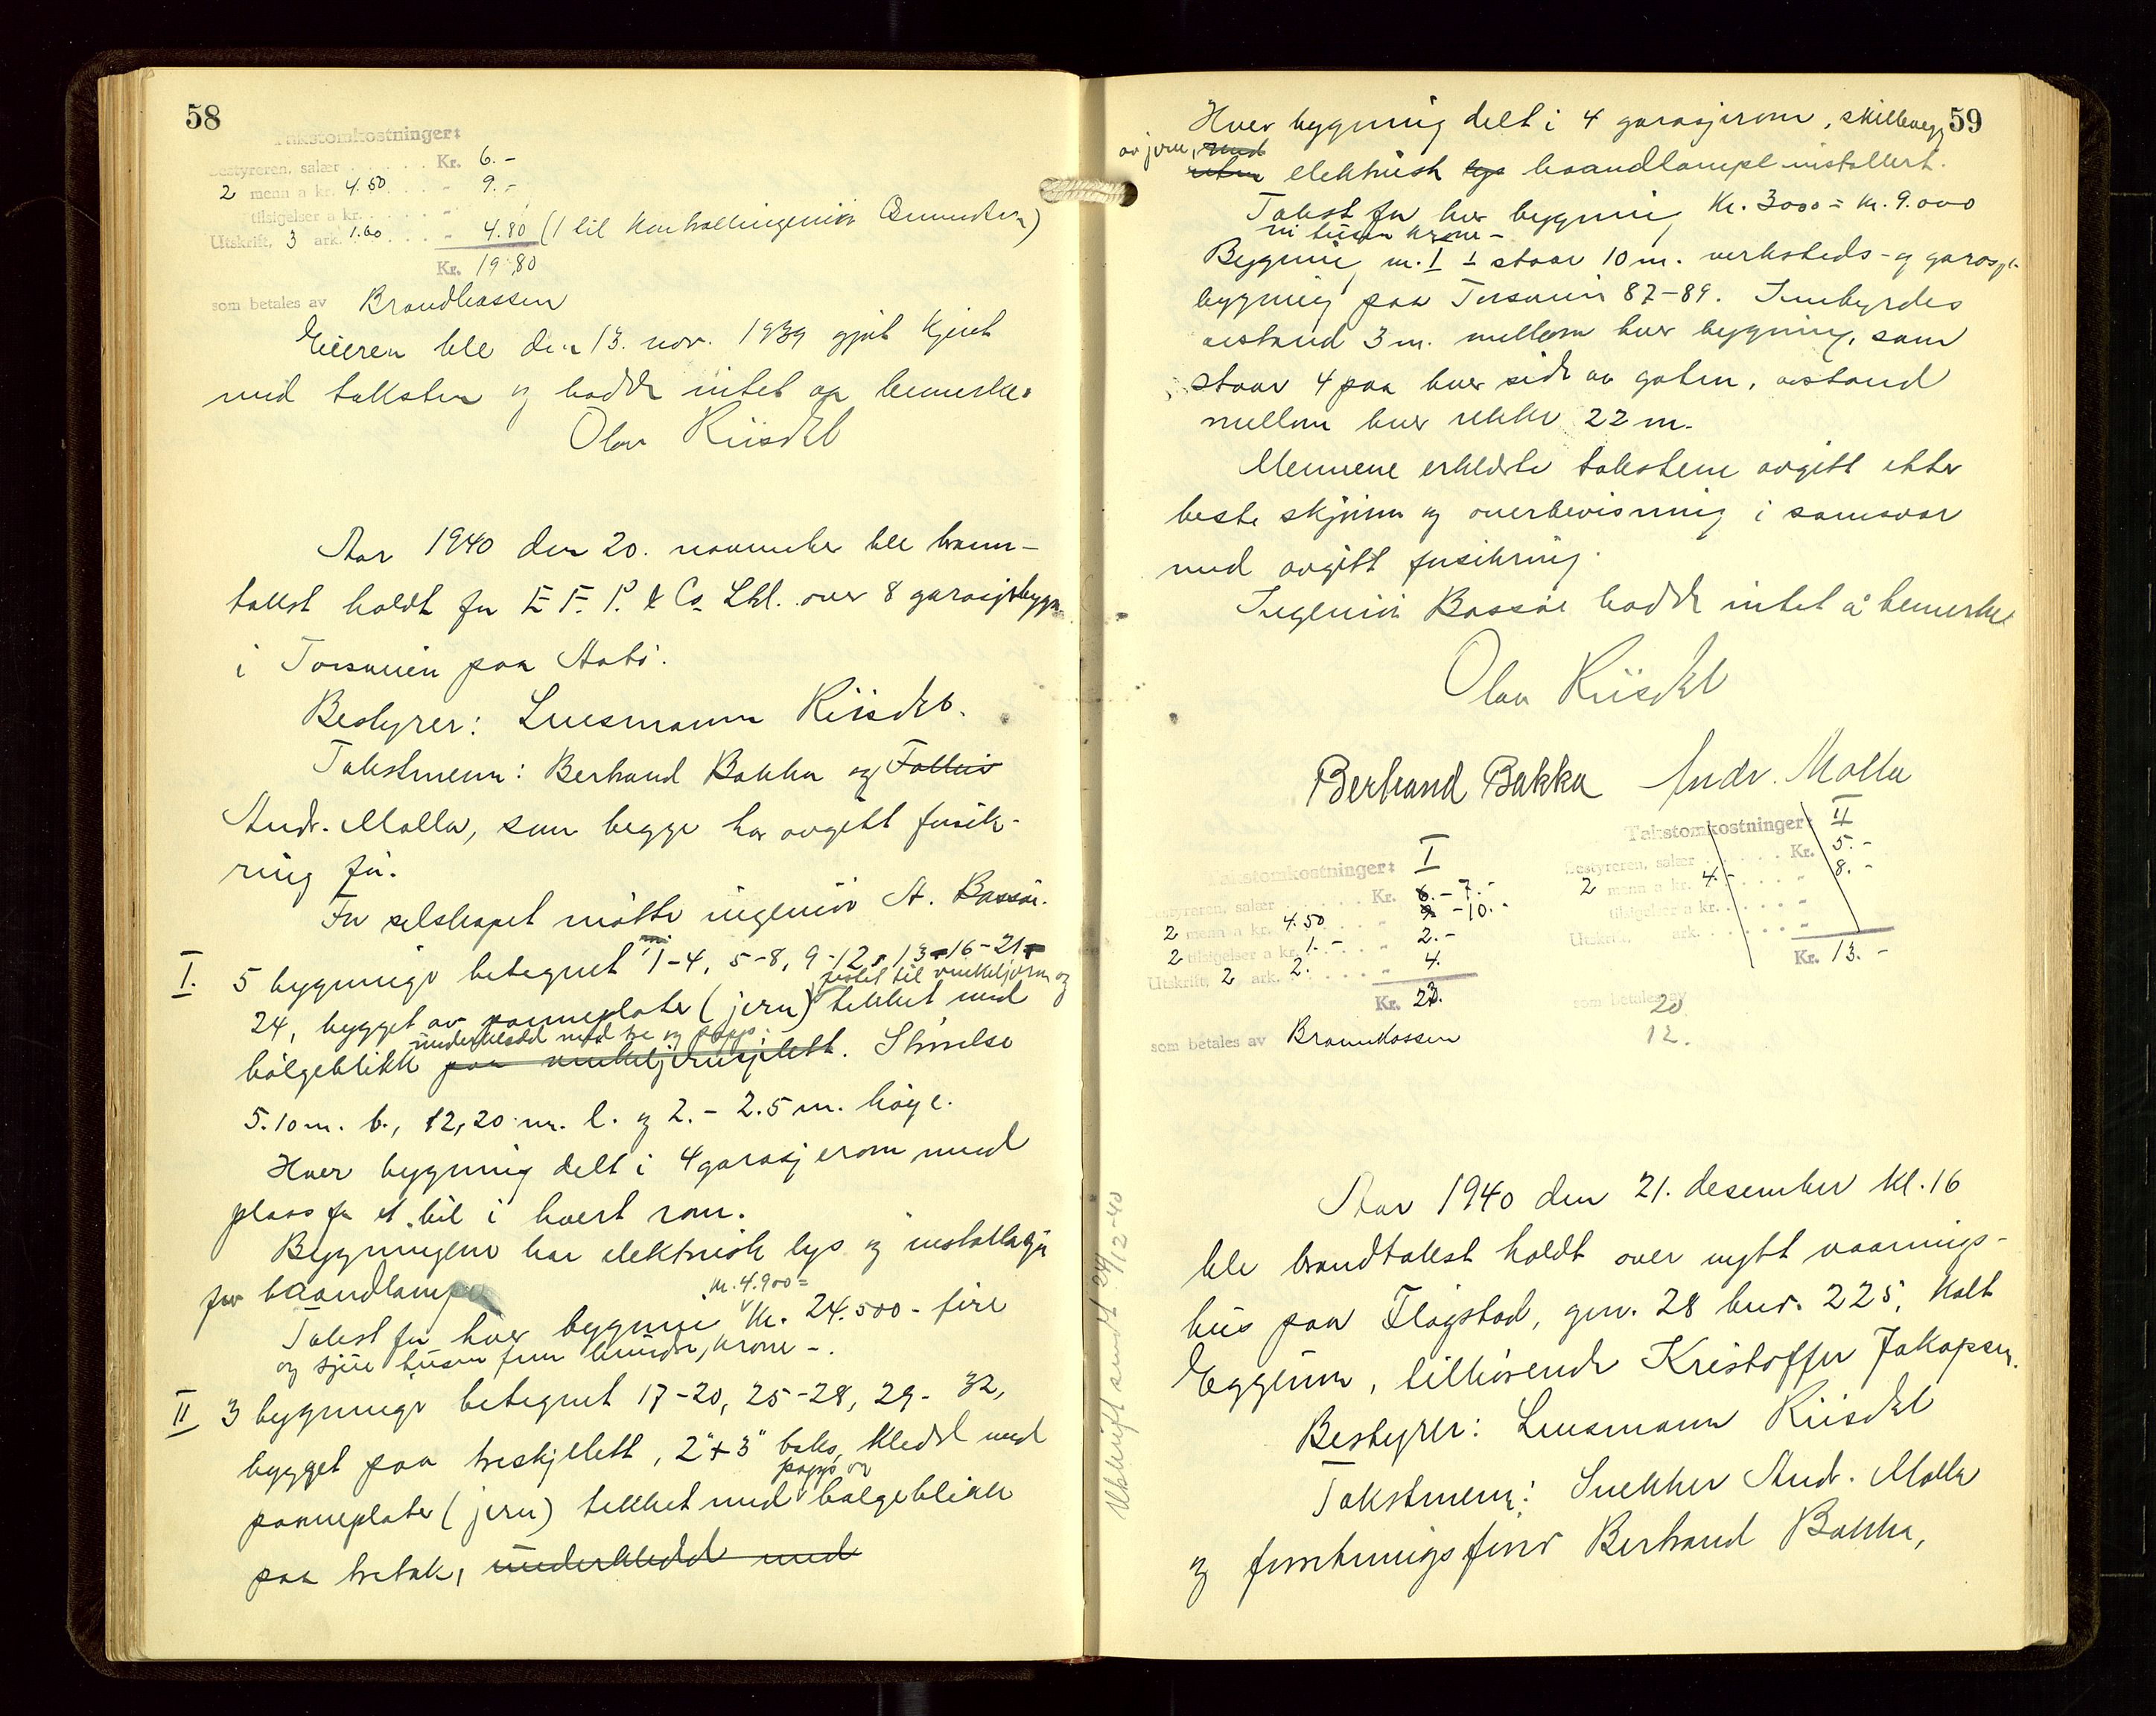 58
Takstomkostninger:
Bestyreren, salær . . . . . . Kr. 6.-
2 menn a kr. 4.50 . . . - 9.-
tilsigelser a kr. . . . . -
Utskrift, 3 ark. 1.60 . . . - 4.80 (1 til Kontrollingeniør
Kr. 19.80
som betales av Brandkassen
Eieren ble den 13. nov. 1939 gjort kjent
med taksten og hadde intet aa bemerke.
Olav Riisdal
Aar 1940 den 20. november ble brann-
takst holdt for E. F. P. & Co Ltd. over 8 garasjebygn.
i Torsveien paa
Bestyrer: Lensmann Riisdal.
Takstmenn: Bertrand Bakka og
Andr. Molla, som begge har avgitt forsik-
ring før.
For selskapet møtte ingeniør A. Bassøe.
I. 5 bygninger betegnet 1-4, 5-8, 9-12, 13-16-21-
festet til vinkeljern og
24, bygget av panneplater (jern) tekket med
underkledd med tre og papp.
bølgeblikk paa vinkeljernsjelett. Størrelse
5.10 m. b., 12,20 m. l. og 2.- 2.5 m. høye.
Hver bygning delt i 4 garasjerom med
plass for et bil i hvert rom.
Bygningene har elektrisk lys og installasjon
for haandlampe
kr. 4.900=
Takst for hver bygning Kr. 24.500 - fire
og tjue tusen fem hundre, krone -.
II 3 bygninger betegnet 17-20, 25-28, 29- 32,
bygget paa treskjelett, 2"+3" kledd med
papp og
panneplater (jern) tekket med bølgeblikk
paa tretak, underkledd med
59
Hver bygning delt i 4 garasjerom, skillevegg
av jern, med
uten elektrisk lys haandlampe installert.
Takst for hver bygning Kr. 3000 = Kr. 9.000
ni tusen krone -
Bygning nr. I 1 staar 10 m. verksteds- og garasje-
bygning paa Torsveien 87-89. Innbyrdes
avstand 3 m. mellom hver bygning, som
staar 4 paa hver side av gaten, avstand
mellom hver rekke 22 m.
Mennene erklærte takstene avgitt etter
beste skjønn og overbevisning i samsvar
med avgitt forsikring.
Ingeniør Bassøe hadde intet å bemerke
Olav Riisdal
Bertrand Bakka Andr. Molla
Takstomkostninger: I
Bestyreren, salær . . . . . . Kr. 6.- 7.-
2 menn a kr. 4.50 . . - 9 -10.-
2 tilsigelser a kr. 1.- . . . - 2.-
Utskrift, 2 ark. 2. . . . - 4.
Kr. 23.
som betales av Brannkassen
Takstomkostninger: II
Bestyreren, salær . . . . . . Kr. 5.-
2 menn a kr. 4.- . . . - 8.-
tilsigelser a kr. . . . . -
Utskrift, ark. . . . . -
Kr. 13.-
som betales av
20
12.
Utskrift sendt 24/12-40
Aar 1940 den 21. desember kl. 16
ble brandtakst holdt over nytt vaanings-
hus paa Flagstad, gnr. 28 bnr. 225, kalt
Eggtun, tilhørende Kristoffer Jakopsen.
Bestyrer: Lensmann Riisdal
Takstmenn: Snekker Andr. Molla
og forretningsfører Bertrand Bakka,